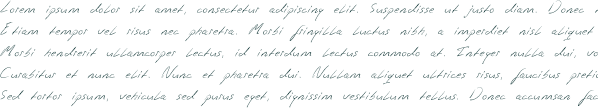 Lorem ipsum dolor sit amet, consectetur adipiscing elit. Suspendisse ut justo diam. Donec
Etiam tempor vel risus nec pharetra. Morbi fringilla luctus nibh, a imperdiet nisl aliquet
Morbi hendrerit ullamcorper lectus, id interdum lectus commodo at. Integer nulla dui,
Curabitur et nunc elit. Nunc et pharetra dui. Nullam aliquet ultrices risus, faucibus
Sed tortor ipsum, vehicula sed purus eget, dignissim vestibulum tellus. Donec accumsan